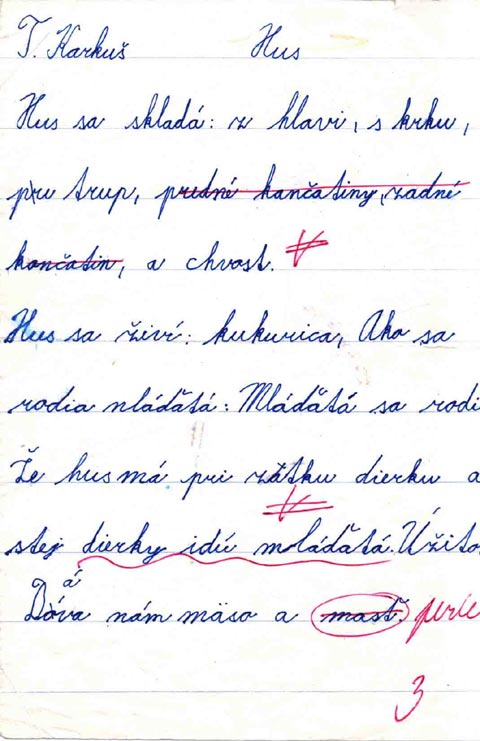 T. Karkuš Hus
Hus sa skladá: z hlavi, s krku,
trup, predné kančatiny, zadné
končatin, a chvost.
Hus sa živí: kukurica, Ako sa
rodia nláďatá: Mláďatá sa rodi
Že hus má pri zátku dierku a
stej dierky idú mláďatá. Úžito
á
Dáva nám mäso a masť. perie
3